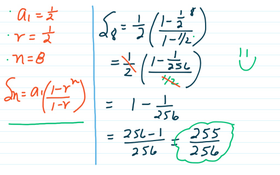 • a₁ = 1/2
• r = 1/2
• n = 8
Sn = a₁ (1-rⁿ / 1-r)
S₈ = 1/2 (1 - 1/2⁸ / 1 - 1/2)
= 1/2 (1 - 1/256 / 1/2)
= 1 - 1/256
= 256-1 / 256 = 255/256